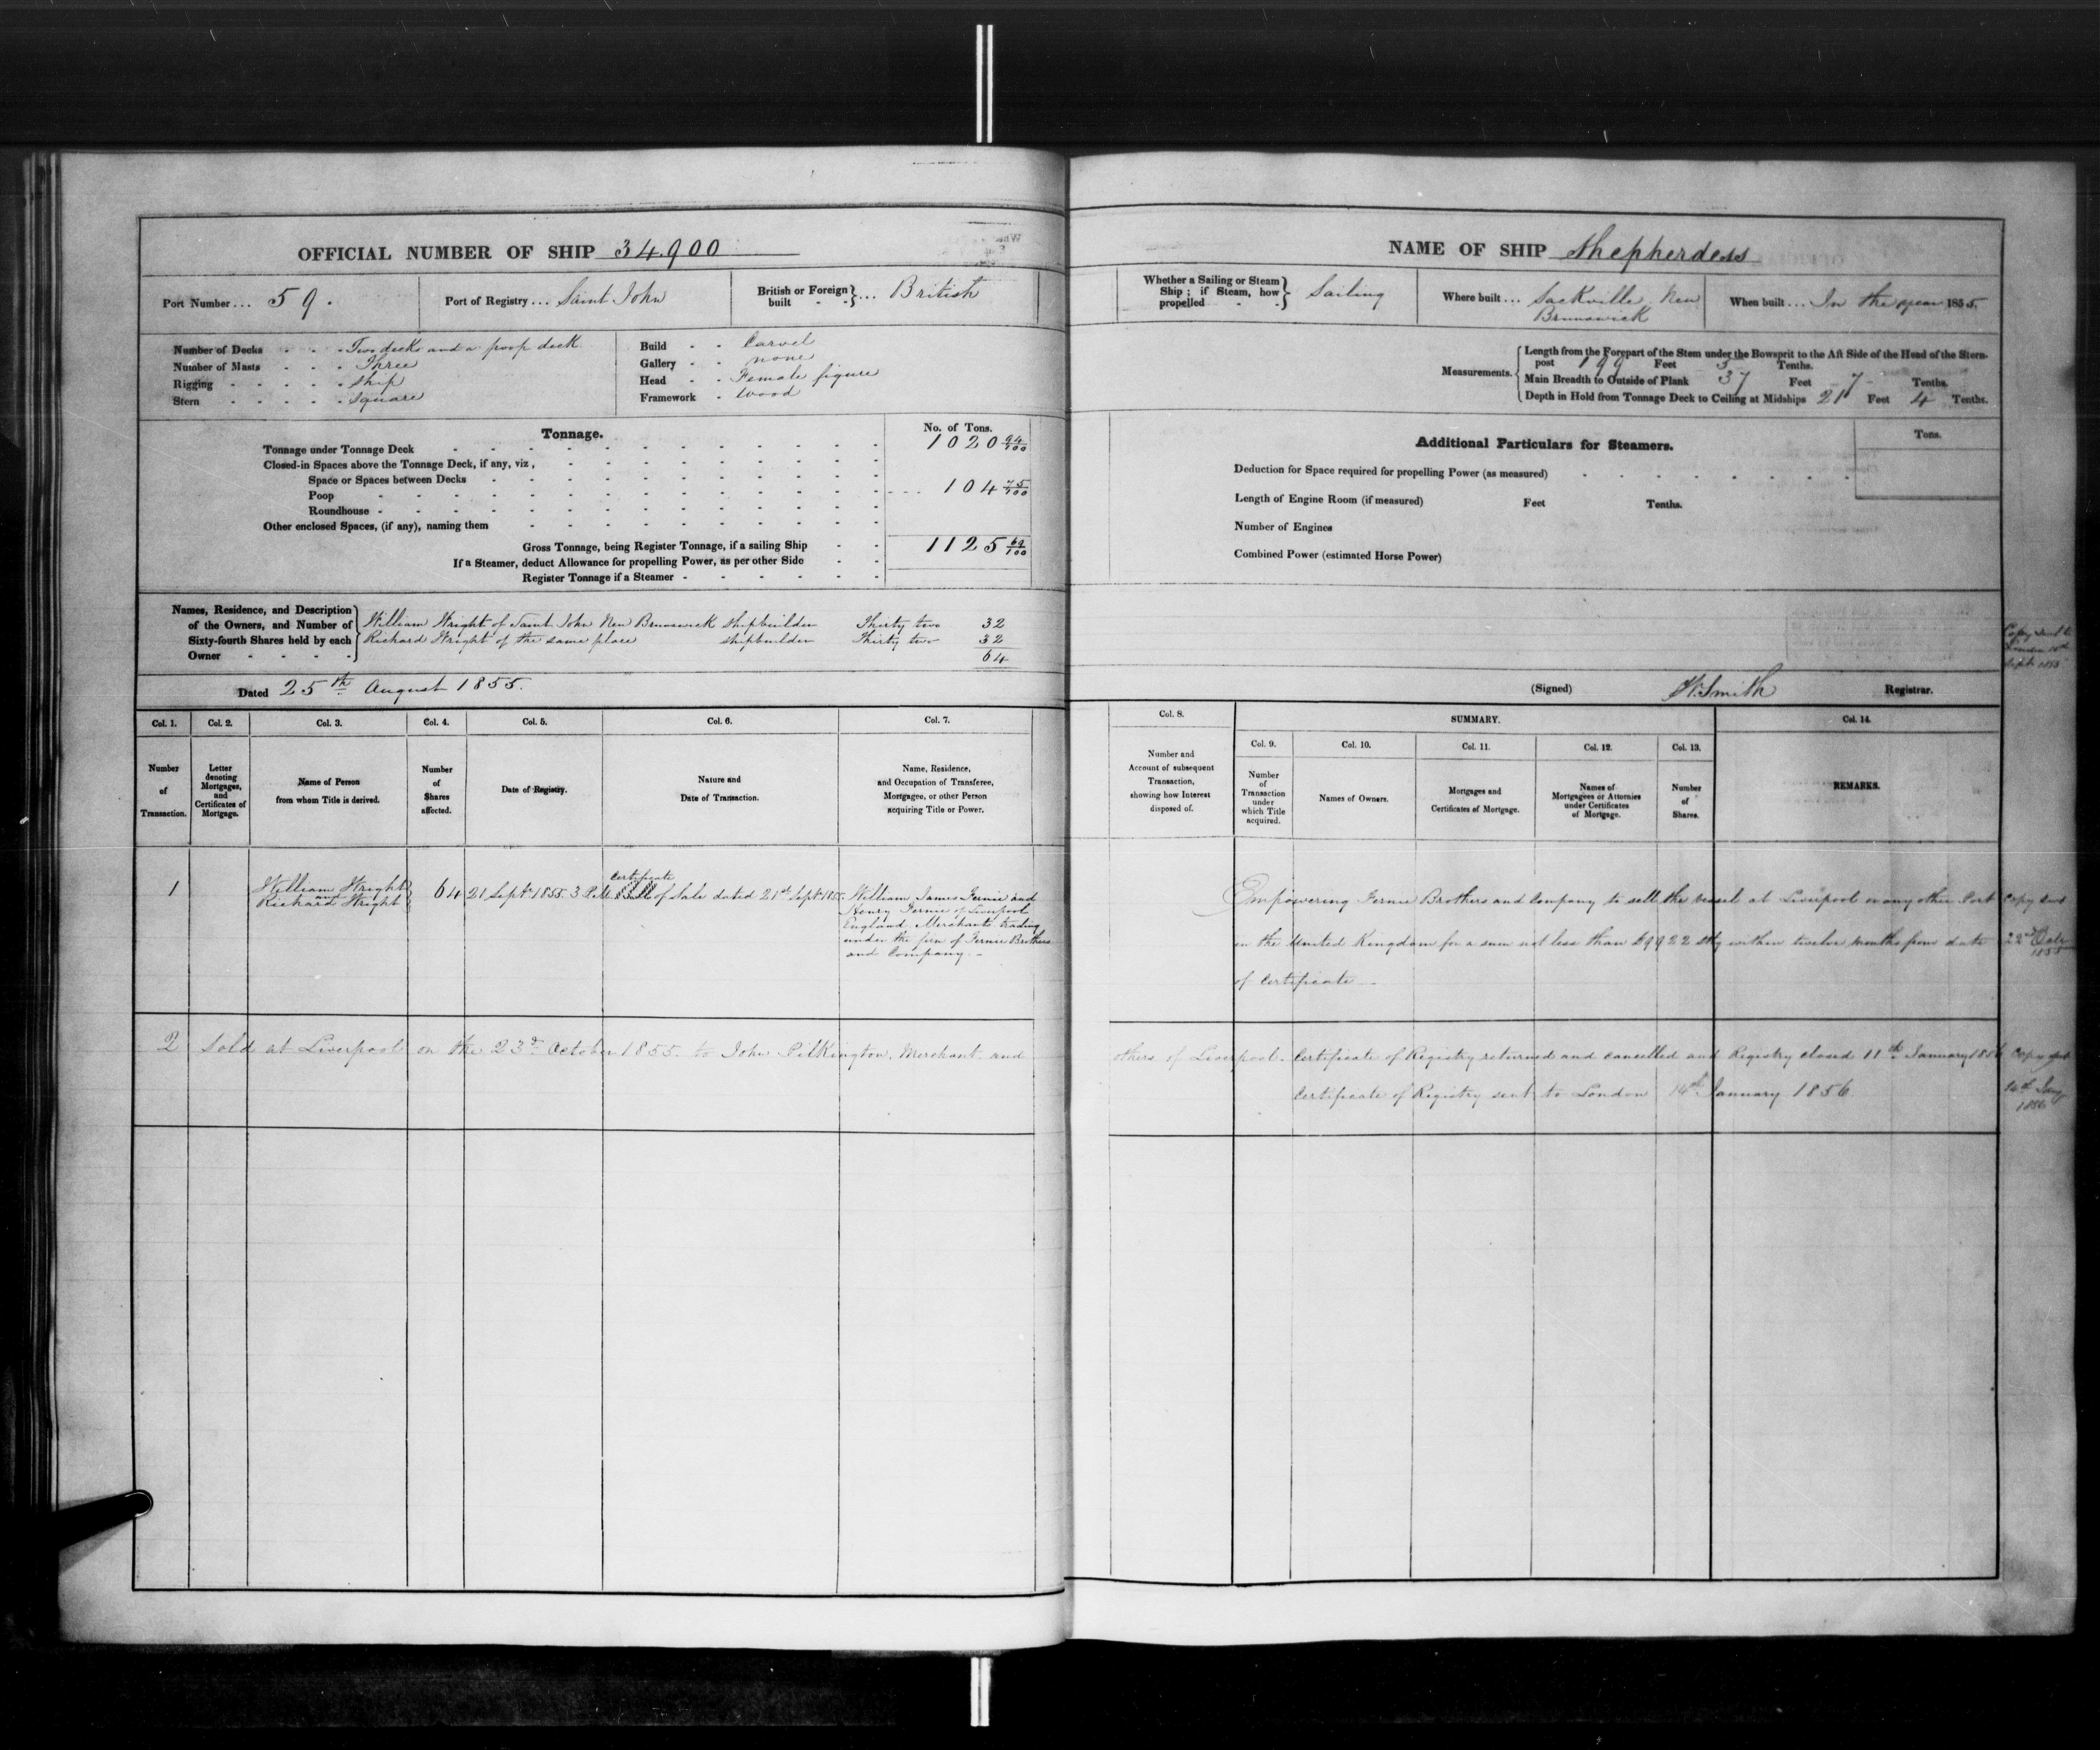 OFFICIAL NUMBER OF SHIP 34.900
Port Number ... 59.
Port of Registry ... Saint John
British or Foreign built ... British
Number of Decks - - - Two decks and a poop deck
Number of Masts - - - Three
Rigging - - - - - Ship
Stern - - - - - Square
Build - - Carvel
Gallery - - none
Head - - Female figure
Framework - Wood
Tonnage.
No. of Tons.
Tonnage under Tonnage Deck 1020 94/100
Closed-in Spaces above the Tonnage Deck, if any, viz,
Space or Spaces between Decks
Poop 104 75/100
Roundhouse
Other enclosed Spaces, (if any), naming them
Gross Tonnage, being Register Tonnage, if a sailing Ship 1125 69/100
If a Steamer, deduct Allowance for propelling Power, as per other Side
Register Tonnage if a Steamer
Names, Residence, and Description of the Owners, and Number of Sixty-fourth Shares held by each Owner
William Wright of Saint John New Brunswick Shipbuilder Thirty two 32
Richard Wright of the same place Shipbuilder Thirty two 32
64
Dated 25th August 1855.
Col. 1. Col. 2. Col. 3. Col. 4. Col. 5. Col. 6. Col. 7.
Number of Transaction.
Letter denoting Mortgages, and Certificates of Mortgage.
Name of Person from whom Title is derived.
Number of Shares affected.
Date of Registry.
Nature and Date of Transaction.
Name, Residence, and Occupation of Transferee, Mortgagee, or other Person acquiring Title or Power.
1
William Wright
and
Richard Wright
64
21 Sept 1855 3 P.M.
Certificate
Bill of Sale dated 21st Sept 1855.
William James Fernie and
Henry Fernie of Liverpool
England Merchants trading
under the firm of Fernie Brothers
and Company. -
2 Sold at Liverpool on the 23d October 1855 to John Pilkington, Merchant and
NAME OF SHIP Shepherdess
Whether a Sailing or Steam Ship; if Steam, how propelled
Sailing
Where built ... Sackville New
Brunswick
When built ... In the year 1855
Measurements.
Length from the Forepart of the Stem under the Bowsprit to the Aft Side of the Head of the Stern-
post 199 Feet 5 Tenths.
Main Breadth to Outside of Plank 37 Feet 7 Tenths.
Depth in Hold from Tonnage Deck to Ceiling at Midships 21 Feet 4 Tenths.
Additional Particulars for Steamers.
Tons.
Deduction for Space required for propelling Power (as measured)
Length of Engine Room (if measured) Feet Tenths.
Number of Engines
Combined Power (estimated Horse Power)
Copy sent to
London
Sept 1855
(Signed) W. Smith Registrar.
Col. 8.
SUMMARY.
Col. 14.
Col. 9. Col. 10. Col. 11. Col. 12. Col. 13.
Number and Account of subsequent Transaction, showing how Interest disposed of.
Number of Transaction under which Title acquired.
Names of Owners.
Mortgages and Certificates of Mortgage.
Names of Mortgagees or Attornies under Certificates of Mortgage.
Number of Shares.
REMARKS.
Empowering Fernie Brothers and Company to sell the vessel at Liverpool or any other Port
in the United Kingdom for a sum not less than £9922 Stg within twelve months from date
of Certificate -
Copy sent
22nd
1855
others of Liverpool. Certificate of Registry returned and cancelled and Registry closed 11th January 1856
Certificate of Registry sent to London 14th January 1856
Copy sent
14th Jany
1856